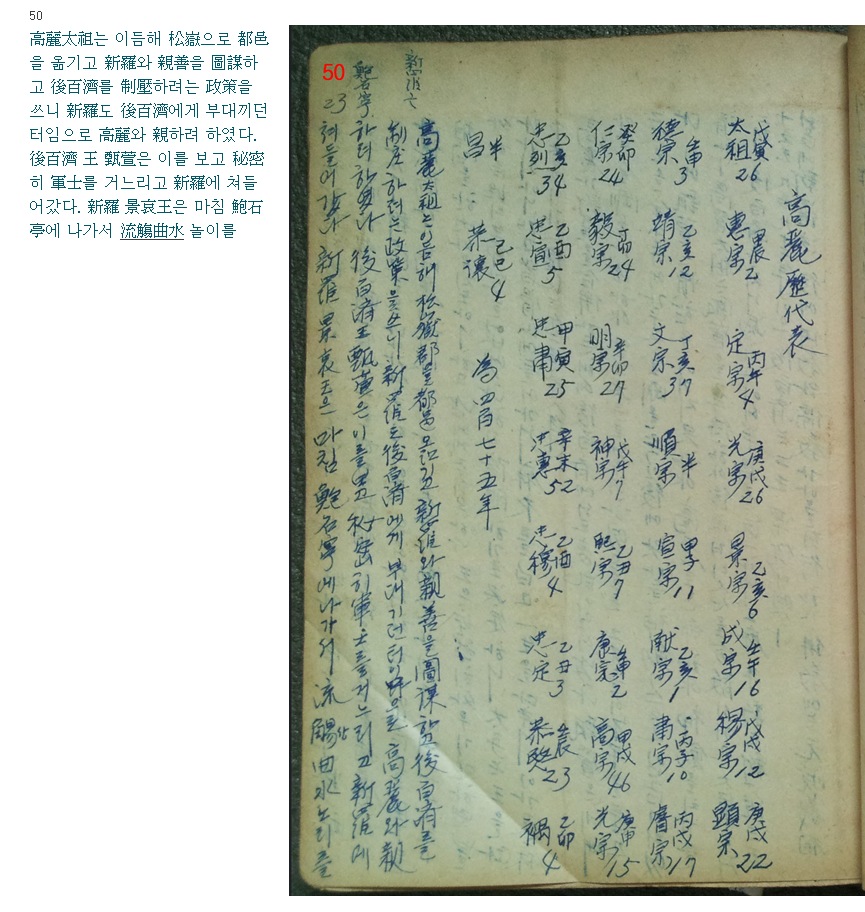 50
高麗太祖는 이듬해 松嶽으로 都邑
을 옮기고 新羅와 親善을 圖謀하
고 後百濟를 制壓하려는 政策을
쓰니 新羅도 後百濟에게 부대끼던
터임으로 高麗와 親하려 하였다.
後百濟 王 甄萱은 이를 보고 秘密
히 軍士를 거느리고 新羅에 쳐들
어갔다. 新羅 景哀王은 마침 鮑石
亭에 나가서 流觴曲水 놀이를
50
高麗歷代表
太祖 戊寅 26 惠宗 甲辰 2 定宗 丙午 4 光宗 庚戌 26 景宗 乙亥 6 成宗 壬午 16 穆宗 戊戌 12 顯宗 庚戌 22
德宗 壬申 3 靖宗 乙亥 12 文宗 丁亥 37 順宗 半 宣宗 甲子 11 献宗 乙亥 1 肅宗 丙子 10 睿宗 丙戌 17
仁宗 癸卯 24 毅宗 丁卯 24 明宗 辛卯 27 神宗 戊午 7 熙宗 乙丑 7 康宗 壬申 2 高宗 甲戌 46 光宗 庚申 15
忠烈 乙亥 34 忠宣 乙酉 5 忠肅 甲寅 25 忠惠 辛未 52 忠穆 乙酉 4 忠定 乙丑 3 恭愍 壬辰 23 禑 乙卯 4
昌 半 恭讓 乙巳 4 為四百七十五年
高麗太祖는 이듬해 松嶽郡을 都邑을 옴기고 新羅와 親善을 圖謀하고 後百濟를
制压하려는 政策을 쓰니 新羅도 後百濟에게 부대기던 터이므로 高麗와 親
하려 하였다 後百济王 甄萱은 이를 보고 秘密히 軍士를 거느리고 新羅에
新羅 景哀王은 마침 鮑石亭에 나가서 流觴曲水 노리를
상
23